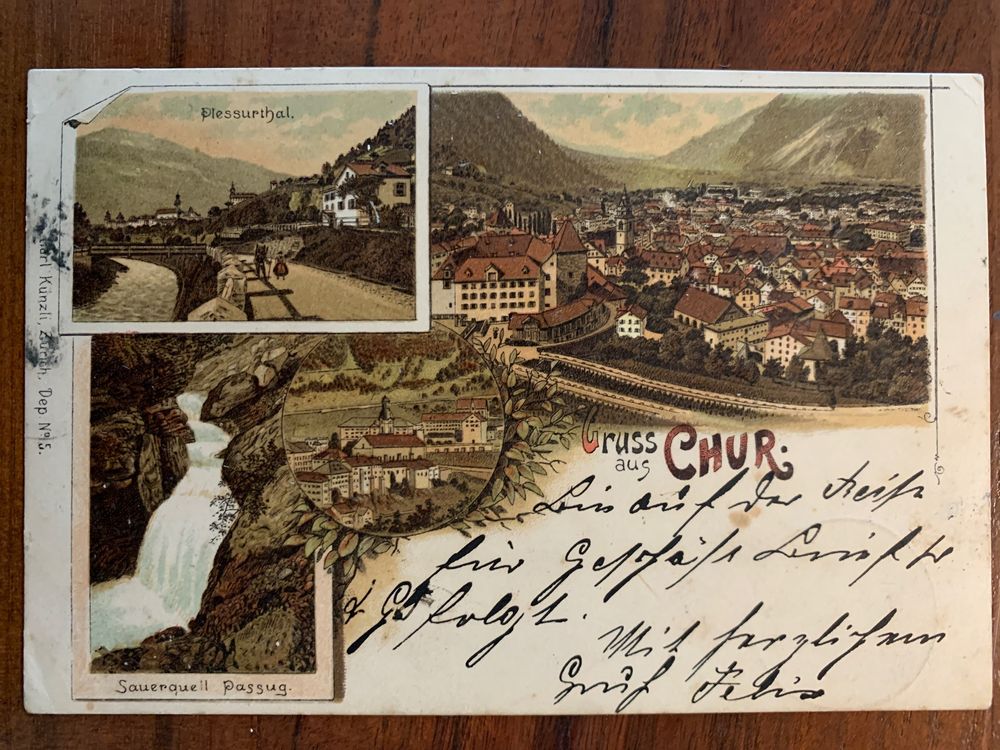 Plessurthal.
Karl Künzli, Zürich, Dep. Nº 15.
Gruss
aus CHUR.
Bin auf der Reise
für Geschäft Brief
folgt.
Mit herzlichem
Gruß Felix
Sauerquell Passug.